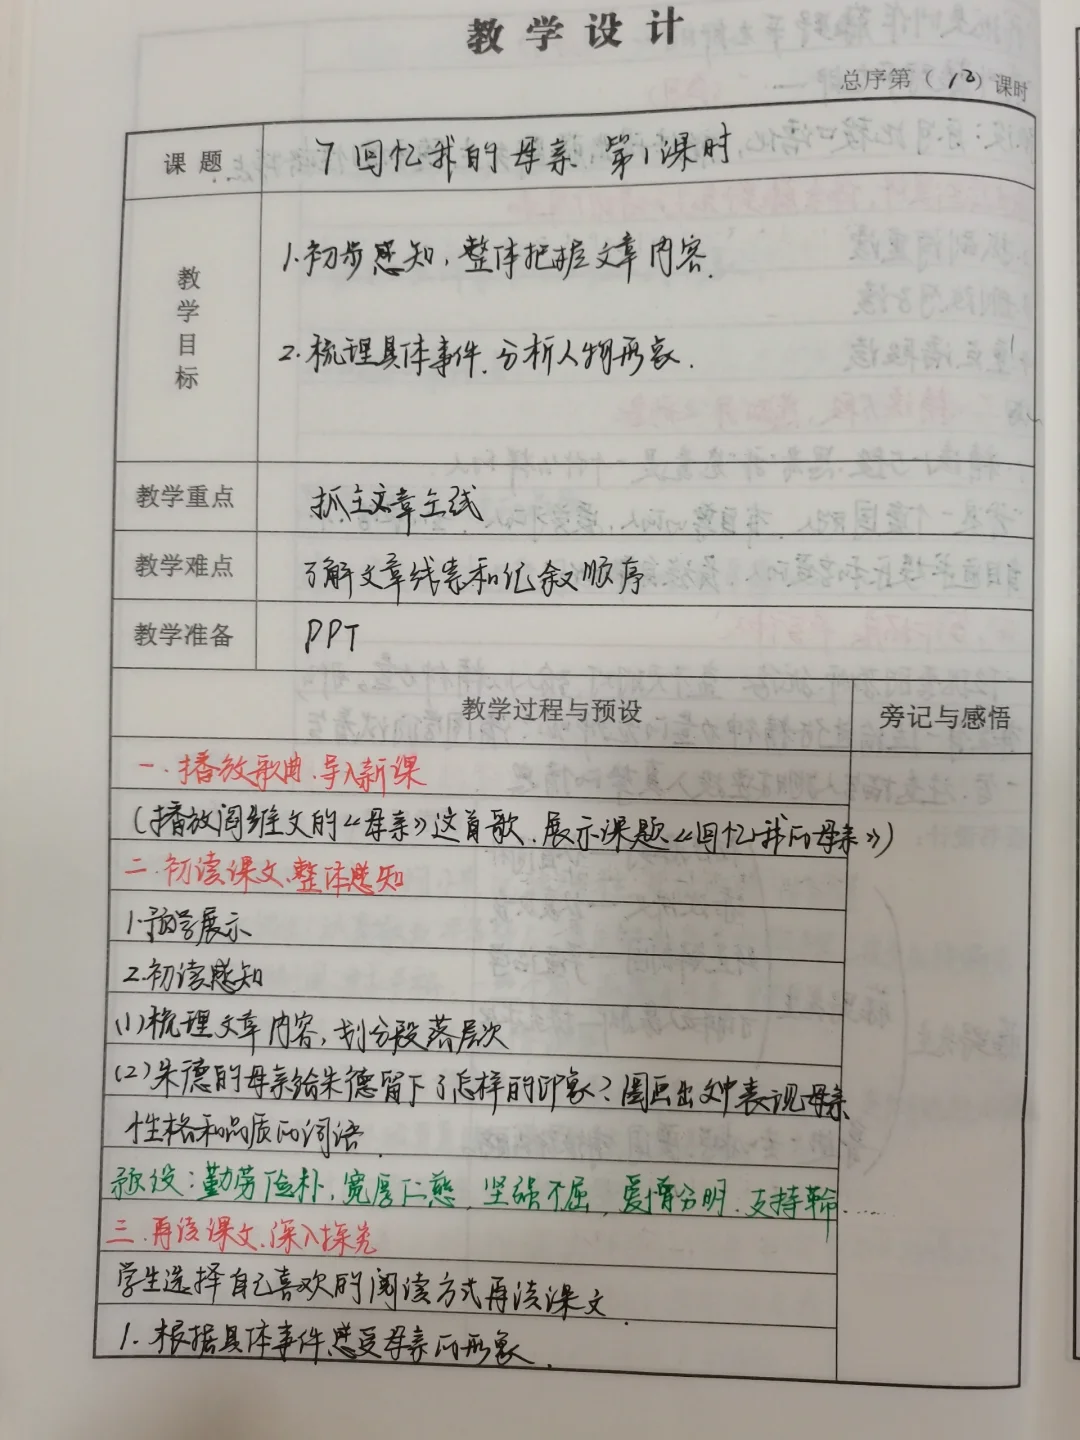 教学设计
总序第（12）课时
课题 7 回忆我的母亲 第1课时
教学目标
1.初步感知，整体把握文章内容.
2.梳理具体事件.分析人物形象.
教学重点 抓主文章主线
教学难点 了解文章线索和记叙顺序
教学准备 PPT
教学过程与预设 旁记与感悟
一.播放歌曲.导入新课
(播放阎维文的《母亲》这首歌.展示课题《回忆我的母亲》)
二.初读课文.整体感知
1.预学展示
2.初读感知
(1)梳理文章内容,划分段落层次
(2)朱德的母亲给朱德留下了怎样的印象?圈画出文中表现母亲
性格和品质的词语.
预设:勤劳俭朴,宽厚仁慈,坚强不屈,爱憎分明.支持革命......
三.再读课文.深入探究
学生选择自己喜欢的阅读方式再读课文.
1.根据具体事件感受母亲的形象.